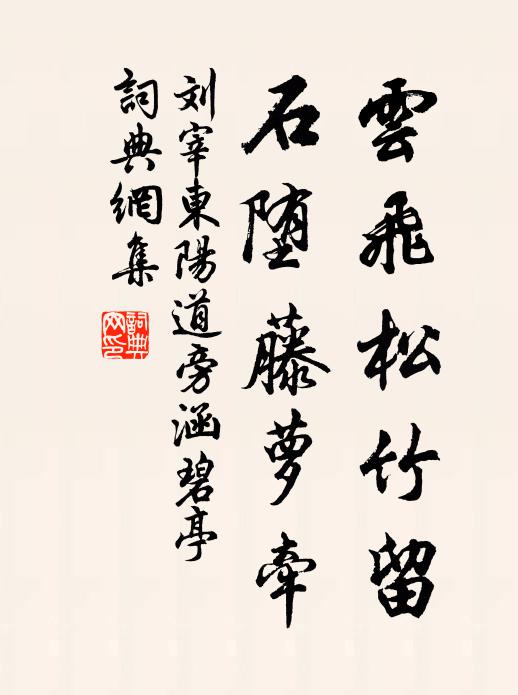 雲飛松竹留
石堕藤萝牽
刘宰東陽道旁涵碧亭
詞典網集
詞典網印